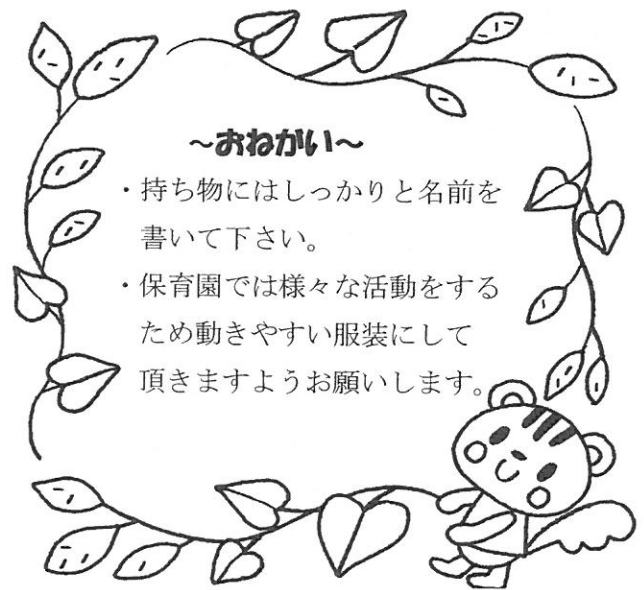 ~おねがい~
・持ち物にはしっかりと名前を
書いて下さい。
・保育園では様々な活動をする
ため動きやすい服装にして
頂きますようお願いします。